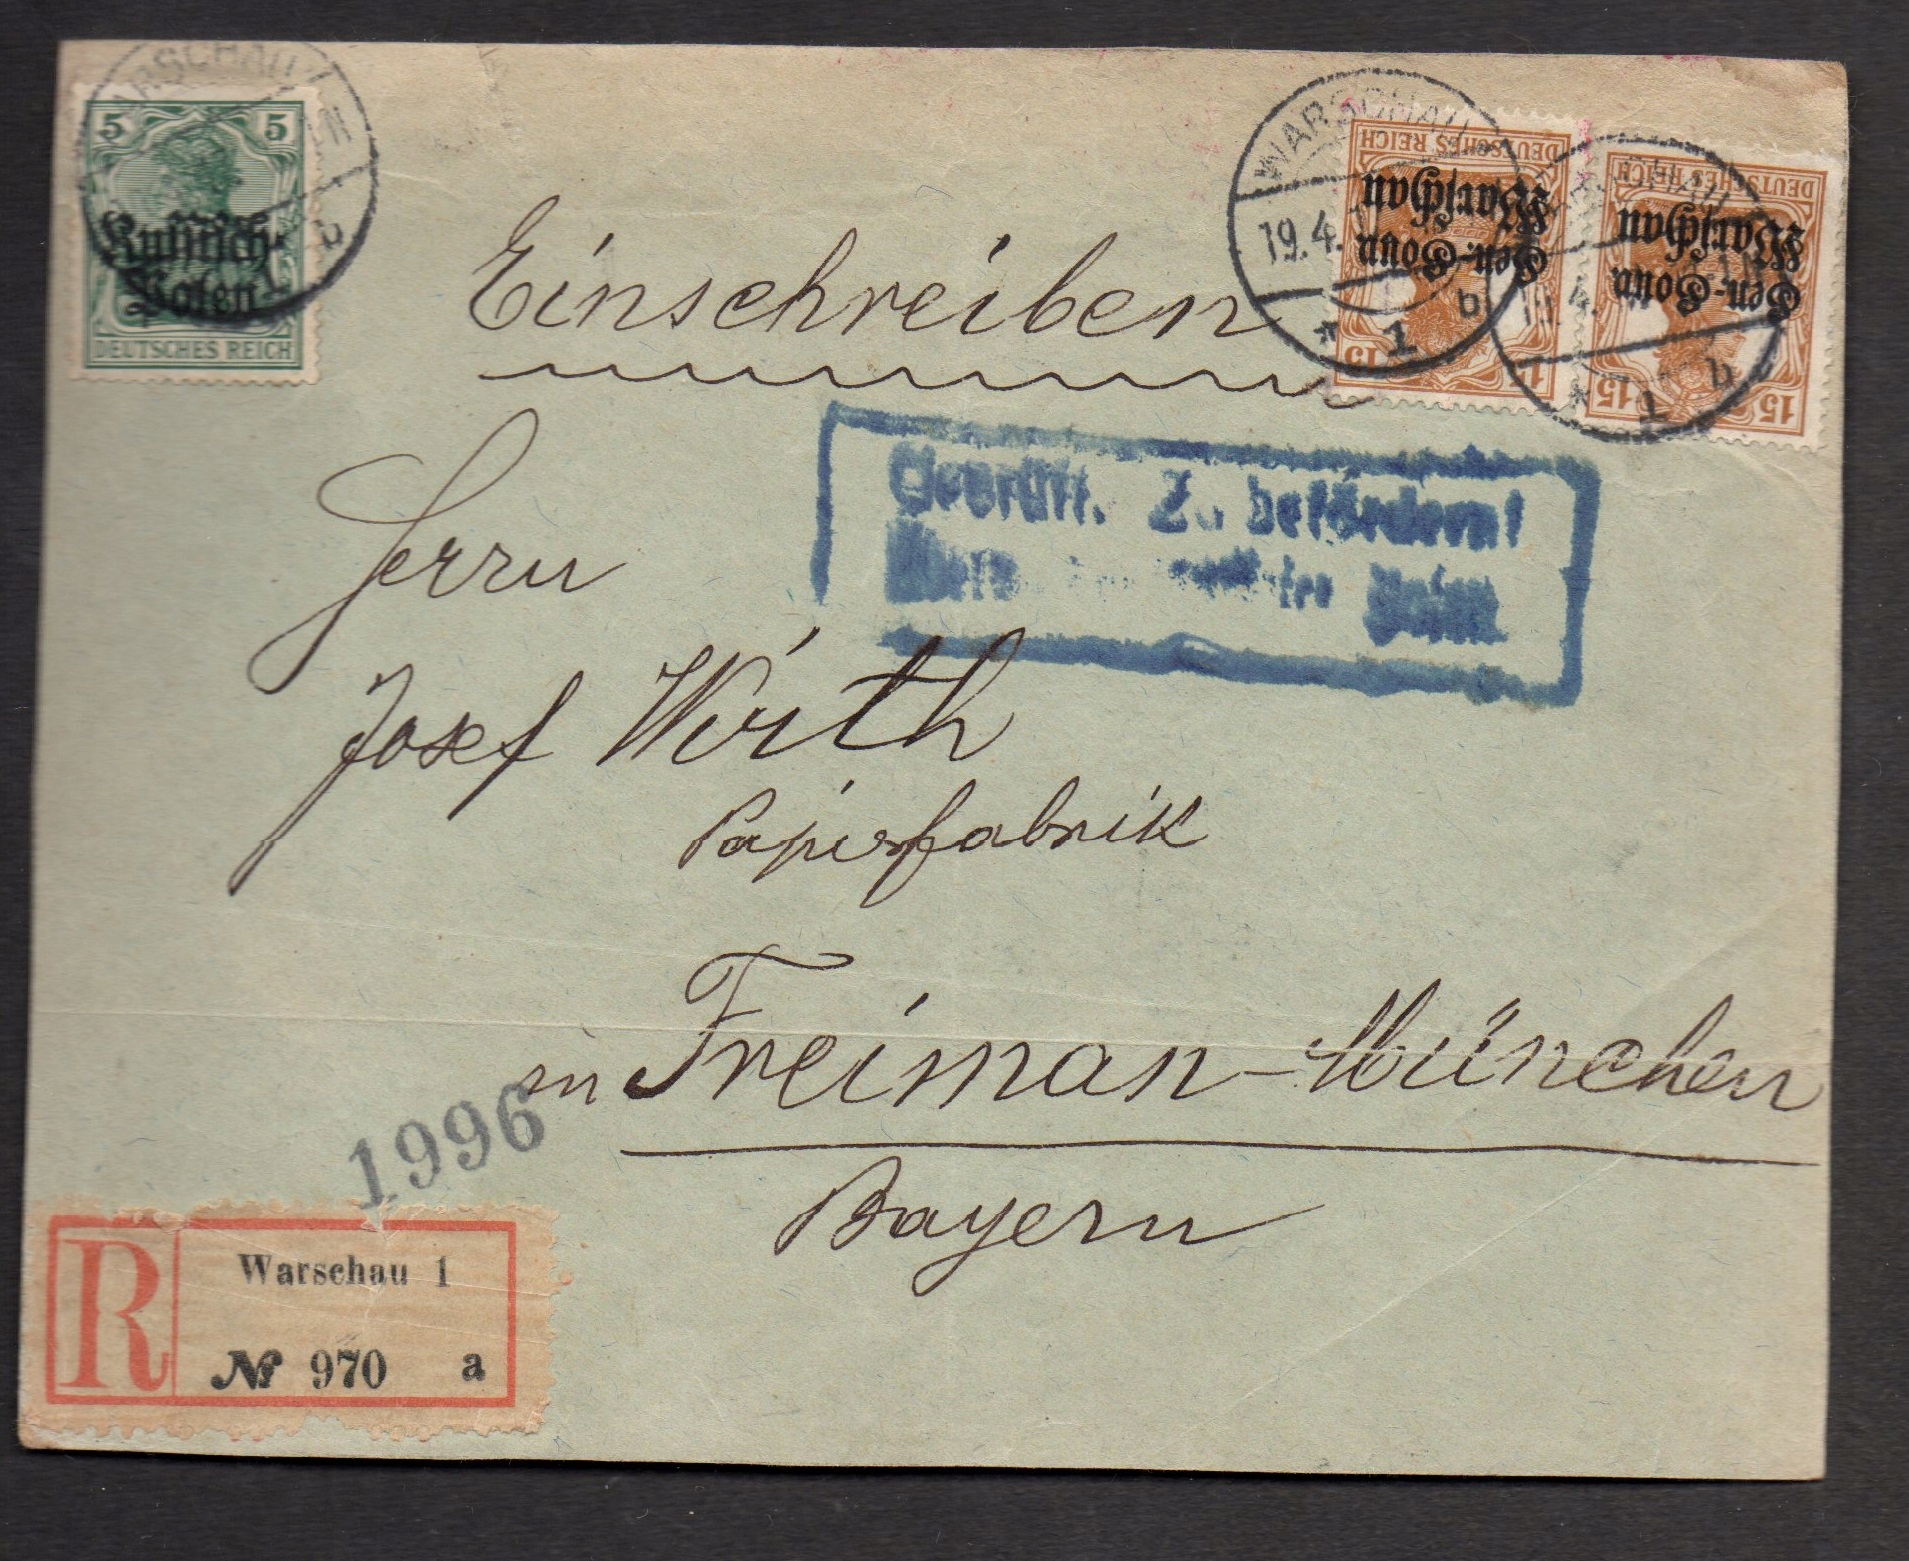 WARSCHAU
5 5
Russisch-
Polen
b
DEUTSCHES REICH
WARSCHAU
19.4.
* 1 b
DEUTSCHES REICH
Gen.-Gouv.
Warschau
15
DEUTSCHES REICH
Gen.-Gouv.
Warschau
15 15
19.4.
* 1 b
Einschreiben
Geprüft. Zu befördern!
Herrn
Josef Wirth
Papierfabrik
in Freiman-München
Bayern
1996
R
Warschau 1
№ 970 a